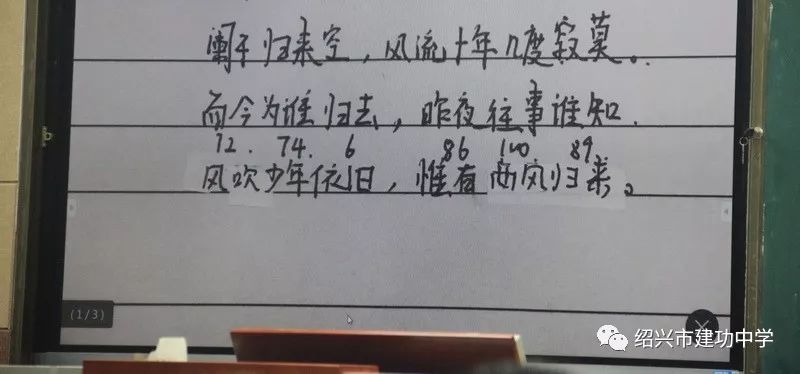 阑干归来空，风流十年几度寂莫。
而今为谁归去，昨夜往事谁知.
12. 74. 6 86 100 89
风吹少年依旧，惟有西风归来。
(1/3)
绍兴市建功中学